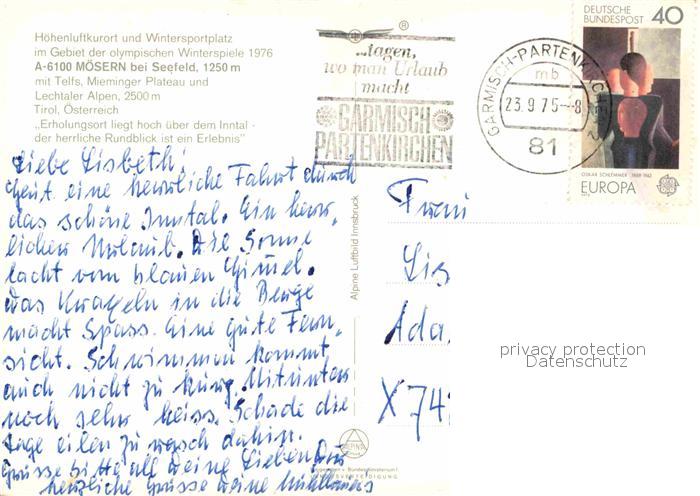 Höhenluftkurort und Wintersportplatz
im Gebiet der olympischen Winterspiele 1976
A-6100 MÖSERN bei Seefeld, 1250 m
mit Telfs, Mieminger Plateau und
Lechtaler Alpen, 2500 m
Tirol, Österreich
„Erholungsort liegt hoch über dem Inntal -
der herrliche Rundblick ist ein Erlebnis"
®
...tagen,
wo man Urlaub
macht
GARMISCH
PARTENKIRCHEN
GARMISCH-PARTENKIRCHEN 2
mb
23.9.75-8
81
DEUTSCHE
BUNDESPOST 40
OSKAR SCHLEMMER 1888-1943
EUROPA
CEPT
Liebe Lisbeth!
Heut eine herrliche Fahrt durch
das schöne Inntal. Ein herr-
licher Urlaub. Die Sonne
lacht vom blauen Himmel.
Das Kraxeln in die Berge
macht Spass. Eine gute Fern-
sicht. Schwimmen kommt
auch nicht zu kurz. Mitunter
noch sehr heiss. Schade die
Tage eilen zu rasch dahin.
Grüsse bitte all deine Lieben
herzliche Grüsse deine
Alpine Luftbild Innsbruck
Frau
Lis
Ada.
X 742
privacy protection
Datenschutz
ALPINE